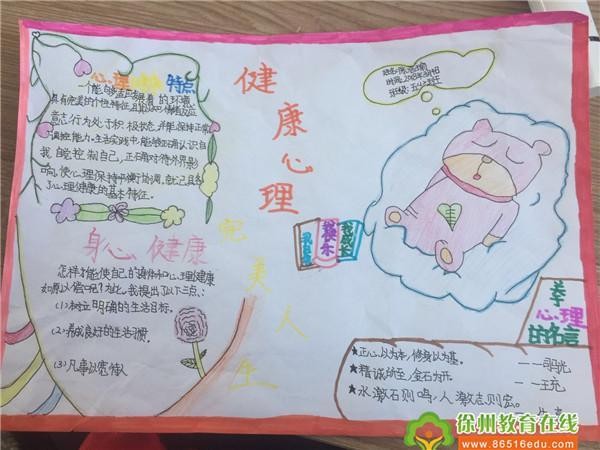 心理健康特点
一个能够适应发展着的环境,
具有完美的个性特征;且认知,情绪反应,
意志,行为处于积极状态,并能保持正常
调控能力。生活实践中,能够正确认识自
我,自觉控制自己,正确对待外界影
响,使心理保持平衡协调,就已具备
了心理健康的基本特征。
身心健康
怎样才能使自己的身体和心理健康
(1)树立明确的生活目标。
(2)养成良好的生活习惯。
(3)凡事以宽待人
健康心理
完美人生
我自信
我快乐
我成长
心理
的名言
★正心以为本,修身以为基。——司马光
★精诚所至,金石为开。——王充
★水激石则鸣,人激志则宏。
徐州教育在线
www.86516edu.com